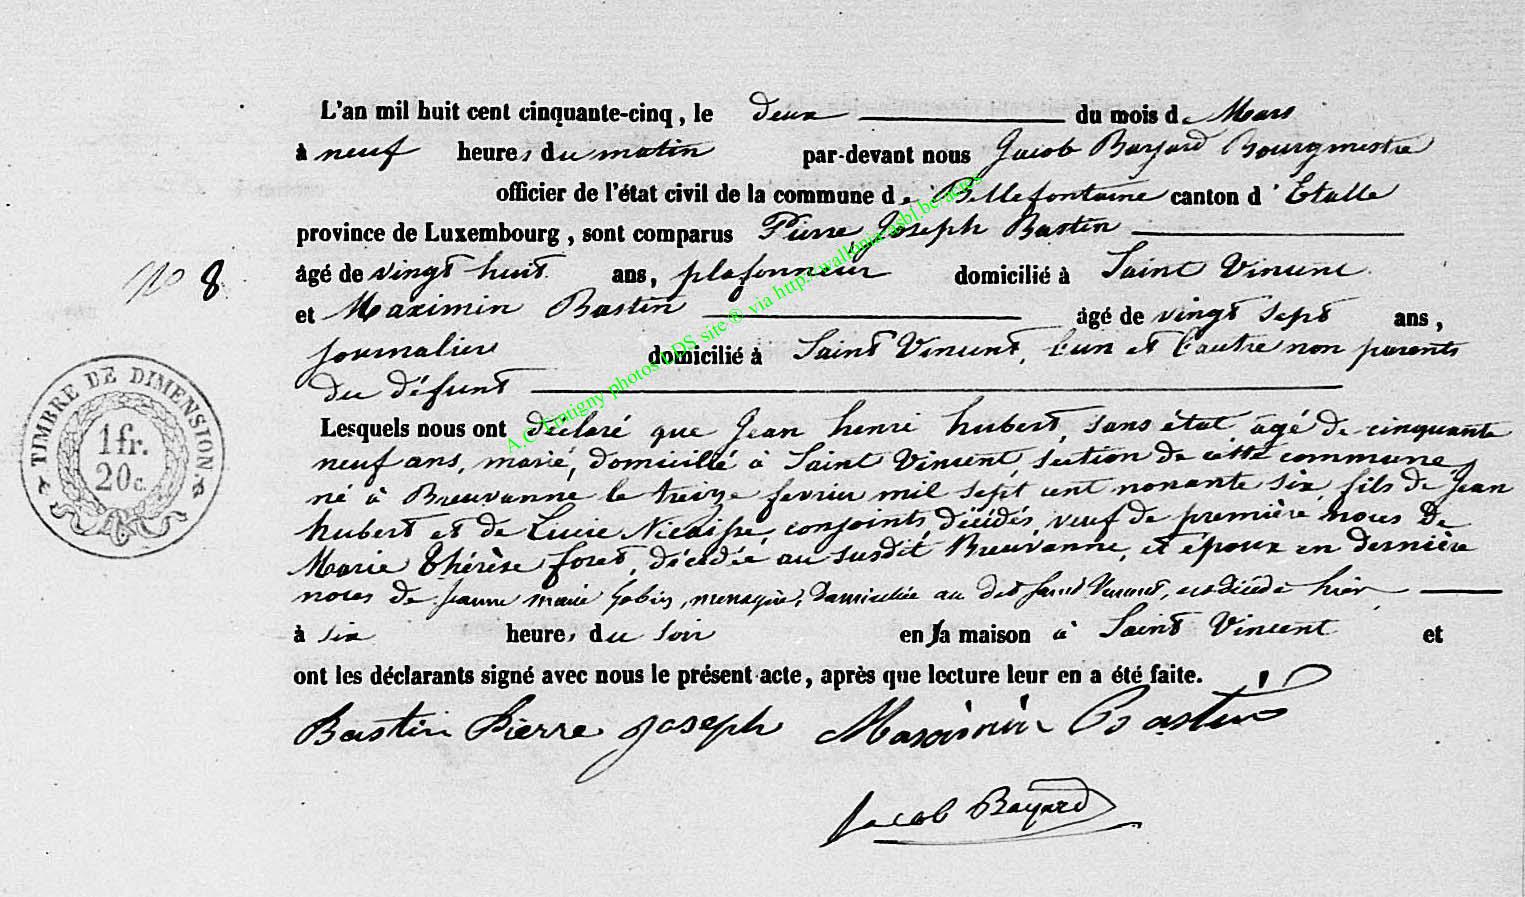 L'an mil huit cent cinquante-cinq, le deux du mois de Mars
à neuf heures du matin par-devant nous Jacob Bayard Bourgmestre
officier de l'état civil de la commune de Bellefontaine canton d'Etalle
province de Luxembourg, sont comparus Pierre Joseph Bastin
No 8
âgé de vingt huit ans, plafonneur domicilié à Saint Vincent
et Maximin Bastin âgé de vingt sept ans,
journalier domicilié à Saint Vincent, l'un et l'autre non parents
du défunt
Lesquels nous ont déclaré que Jean henri hubert, sans état âgé de cinquante
neuf ans, marié, domicilié à Saint Vincent, section de cette commune,
né à Breuvanne le treize fevrier mil sept cent nonante six, fils de Jean
hubert et de Lucie Nicaisse, conjoints décédés, veuf de première noces de
Marie Thérèse foret, décédée au susdit Breuvanne, et époux en dernière
noces de jeanne marie, menagère, domiciliée au dit saint Vincent, est décédé hier
à six heures du soir en sa maison à Saint Vincent et
ont les déclarants signé avec nous le présent acte, après que lecture leur en a été faite.
Bastin Pierre Joseph Maximin Bastin
Jacob Bayard
TIMBRE DE DIMENSION
1 fr.
20 c.
A.C. Tintigny photos LDS site ® via http://wallonia-asbl.be/actes